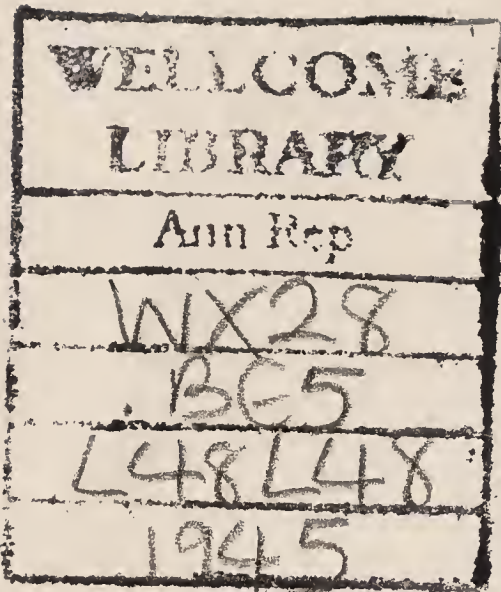 WELLCOME
LIBRARY
Ann Rep
WX28
.BE5
L48L48
1945